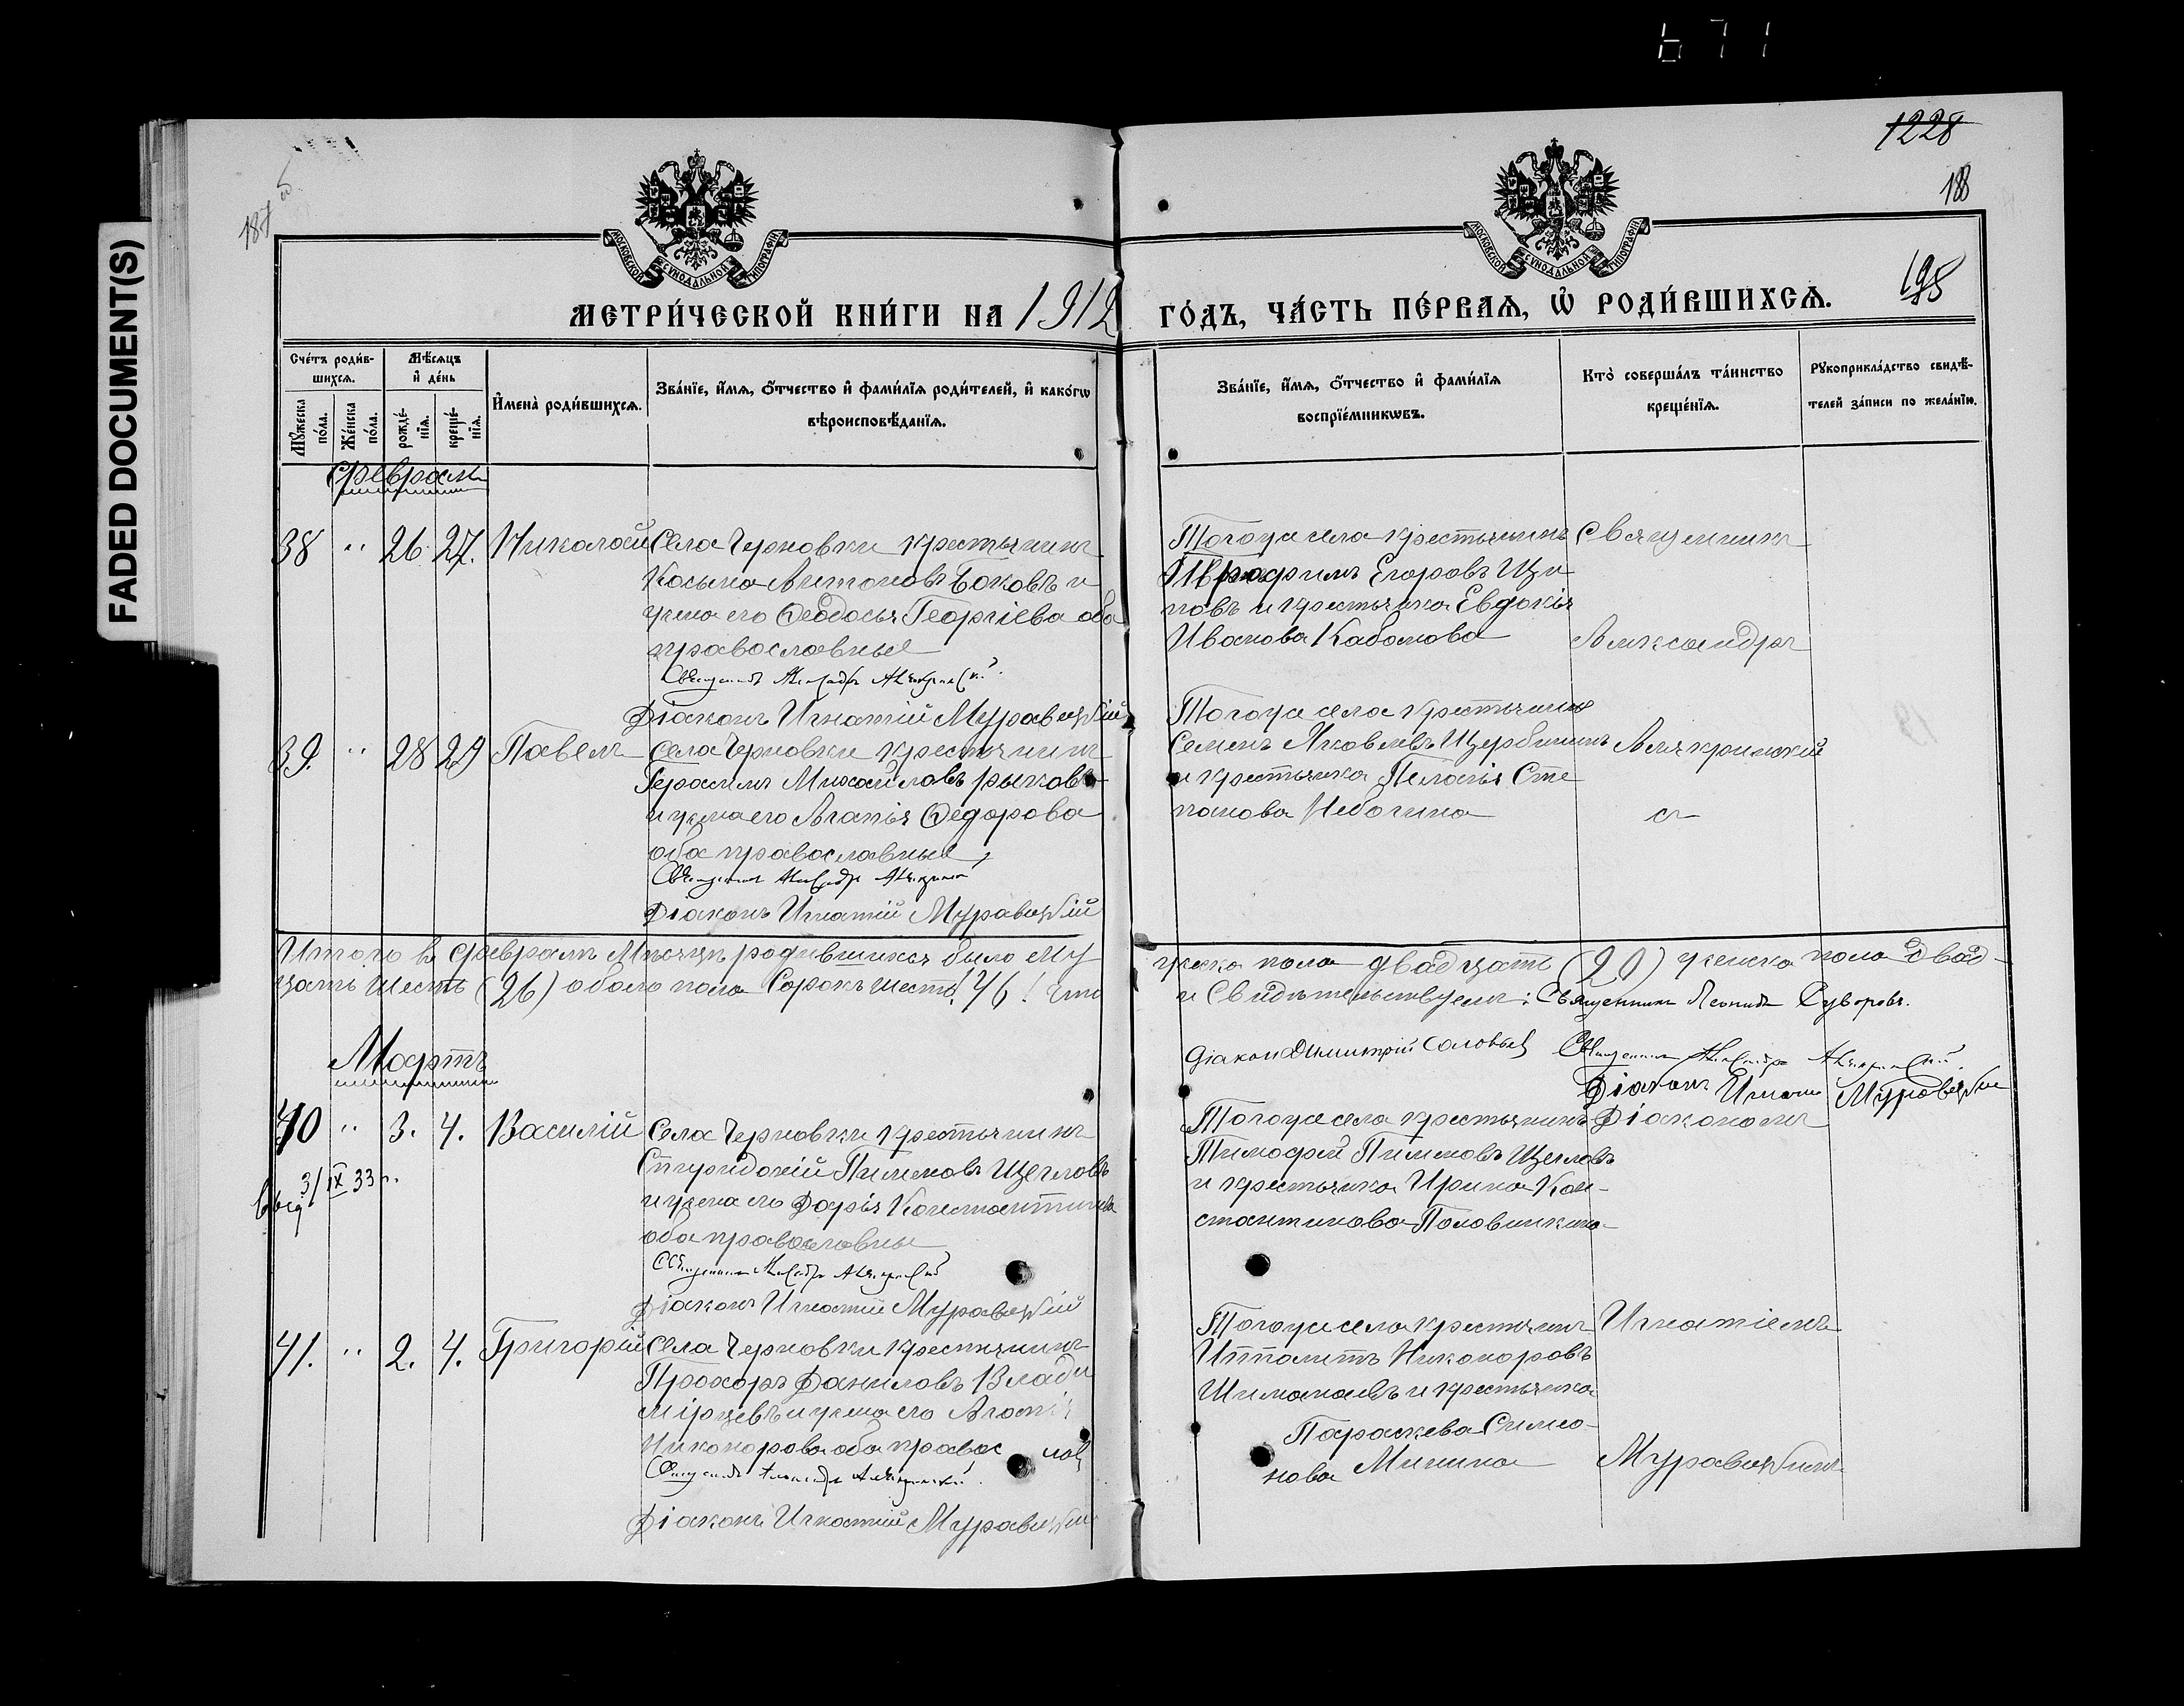 671
FADED DOCUMENT(S)
1228
188
187 об
195
МОСКОВСКОЙ СѴНОДАЛЬНОЙ ТИПОГРАФІИ
МОСКОВСКОЙ СѴНОДАЛЬНОЙ ТИПОГРАФІИ
МЕТРИ́ЧЕСКОЙ КНИ́ГИ НА 1912
ГО́ДЪ, ЧА́СТЬ ПЕ́РВАѦ, Ѡ҆ РОДИ́ВШИХСѦ.
Сче́тъ роди́в-
шихсѧ.
Мѣ́сѧцъ
и҆ де́нь
Мꙋ́жеска
по́ла.
Же́нска
по́ла.
рожде́-
нїѧ.
креще́-
нїѧ.
И҆мена̀ роди́вшихсѧ.
Зва́нїе, и҆́мѧ, ѻ҆́тчество и҆ фами́лїѧ роди́телей, и҆ како́гѡ
вѣроисповѣ́данїѧ.
Зва́нїе, и҆́мѧ, ѻ҆́тчество и҆ фами́лїѧ
воспрїе́мникѡвъ.
Кто̀ соверша́лъ та́инство
креще́нїѧ.
Рꙋкоприкла́дство свидѣ́-
телей за́писи по жела́нїю.
Февраль
38 " 26. 27. Николай Села Черновки крестьянинъ
Косьма Антоновъ Боковъ и
жена его Ѳеодосья Георгіева оба
православные
Священникъ Александръ Алякринскій
Діаконъ Игнатій Муравецкій
Тогоже села крестьянинъ
Егоровъ Щи
повъ и крестьянка Евдокія
Иванова Кабанова
Священникъ
Александръ
39. " 28 29 Павелъ Села Черновки крестьянинъ
Герасимъ Михайловъ Рыковъ
и жена его Агапія Ѳедорова
оба православные,
Священникъ Александръ Алякринскій
Діаконъ Игнатій Муравецкій
Тогоже села крестьянинъ
Семенъ Яковлевъ Щербининъ
и крестьянка Пелагія Сте
панова Небогина
Алякринскій
Итого въ Февралѣ Мѣсяцѣ родившихся было му
жеска пола двадцать (20) женска пола двад-
цать шесть (26) обоего пола Сорокъ шесть (46) что
и Свидѣтельствуемъ: Священникъ Леонидъ Суворовъ.
Діаконъ Димитрій Соловьевъ Священникъ Александръ Алякринскій.
Діаконъ Игнатій Муравецкій
Мартъ
40 " 3. 4. Василій Села Черновки крестьянинъ
Спиридоній Пименовъ Щегловъ
и жена его Дарья Константинова
оба православны
Священникъ Александръ Алякринскій
Діаконъ Игнатій Муравецкій
3/IX 33 г.
Тогоже села крестьянинъ
Тимофей Пименовъ Щегловъ
и крестьянка Ирина Кон-
стантинова Половинкина
Діаконъ
41. " 2. 4. Григорій Села Черновки крестьянинъ
Прохоръ Даниловъ Влади
мірцевъ и жена его Агапія
Никонорова оба правос лав
Священникъ Александръ Алякринскій.
Діаконъ Игнатій Муравецкій
Тогоже села крестьянинъ
Ипполитъ Никоноровъ
Шимонаевъ и крестьянка
Параскева Симео-
нова Минина
Игнатіемъ
Муравецкимъ